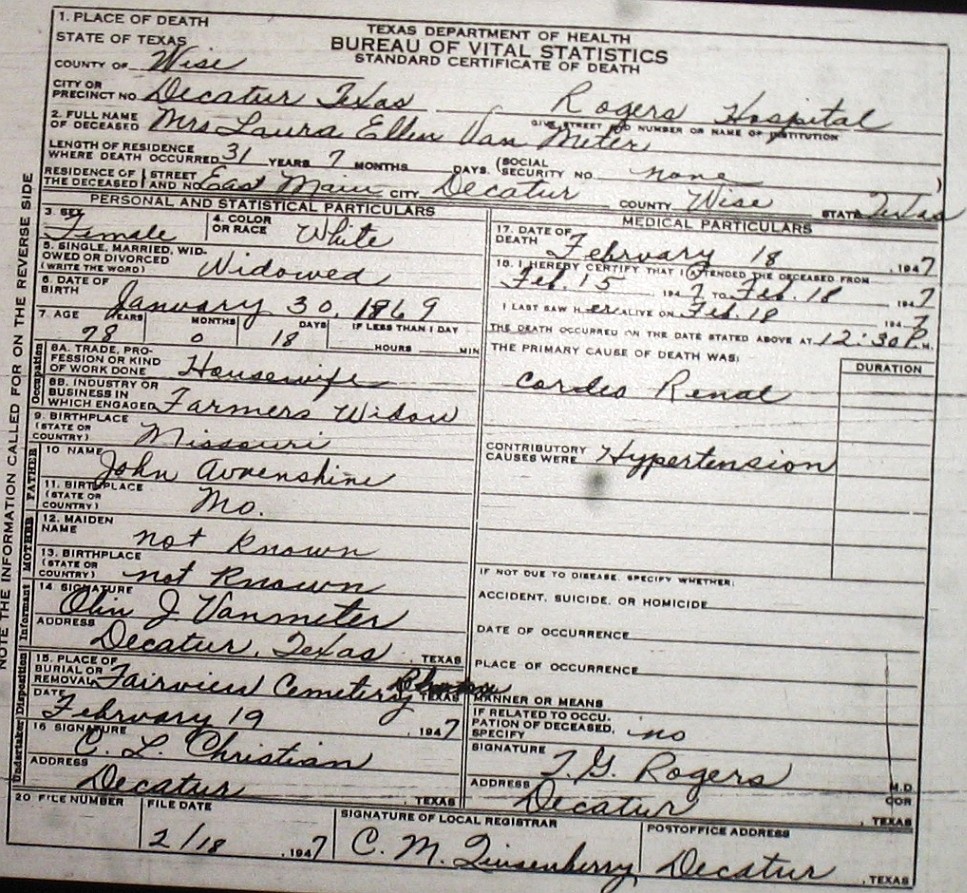 1. PLACE OF DEATH
STATE OF TEXAS
TEXAS DEPARTMENT OF HEALTH
BUREAU OF VITAL STATISTICS
STANDARD CERTIFICATE OF DEATH
COUNTY OF Wise
CITY OR PRECINCT NO. Decatur Texas Rogers Hospital
GIVE STREET AND NUMBER OR NAME OF INSTITUTION
2. FULL NAME OF DECEASED Mrs Laura Ellen Van Meter
LENGTH OF RESIDENCE WHERE DEATH OCCURRED 31 YEARS 7 MONTHS DAYS. (SOCIAL SECURITY NO. none )
RESIDENCE OF THE DECEASED STREET AND NO. East Main CITY Decatur COUNTY Wise STATE Texas
NOTE THE INFORMATION CALLED FOR ON THE REVERSE SIDE
PERSONAL AND STATISTICAL PARTICULARS
3. SEX Female
4. COLOR OR RACE White
5. SINGLE, MARRIED, WIDOWED OR DIVORCED (WRITE THE WORD) Widowed
6. DATE OF BIRTH January 30, 1869
7. AGE YEARS MONTHS DAYS IF LESS THAN 1 DAY
78 0 18 HOURS MIN
Occupation
8A. TRADE, PROFESSION OR KIND OF WORK DONE Housewife
8B. INDUSTRY OR BUSINESS IN WHICH ENGAGED Farmers Widow
9. BIRTHPLACE (STATE OR COUNTRY) Missouri
FATHER
10 NAME John Avrenshine
11. BIRTHPLACE (STATE OR COUNTRY) Mo.
MOTHER
12. MAIDEN NAME not known
13. BIRTHPLACE (STATE OR COUNTRY) not known
Informant
14. SIGNATURE Olin J Vanmeter
ADDRESS Decatur, Texas , TEXAS
Disposition
15. PLACE OF BURIAL OR REMOVAL Fairview Cemetery TEXAS
DATE February 19 , 1947
Undertaker
16 SIGNATURE C. L. Christian
ADDRESS Decatur , TEXAS
MEDICAL PARTICULARS
17. DATE OF DEATH February 18 , 1947
18. I HEREBY CERTIFY THAT I ATTENDED THE DECEASED FROM
Feb. 15 1947 TO Feb. 18 1947
I LAST SAW H er ALIVE ON Feb. 18 1947
THE DEATH OCCURRED ON THE DATE STATED ABOVE AT 12:30 P. M.
THE PRIMARY CAUSE OF DEATH WAS: DURATION
Cardeo Renal
CONTRIBUTORY CAUSES WERE Hypertension
IF NOT DUE TO DISEASE, SPECIFY WHETHER:
ACCIDENT, SUICIDE, OR HOMICIDE
DATE OF OCCURRENCE
PLACE OF OCCURRENCE
MANNER OR MEANS
IF RELATED TO OCCUPATION OF DECEASED, SPECIFY no
SIGNATURE T. G. Rogers M.D.
ADDRESS Decatur COR , TEXAS
20 FILE NUMBER
FILE DATE 2/18 , 1947
SIGNATURE OF LOCAL REGISTRAR C. M. Quisenberry
POSTOFFICE ADDRESS Decatur , TEXAS